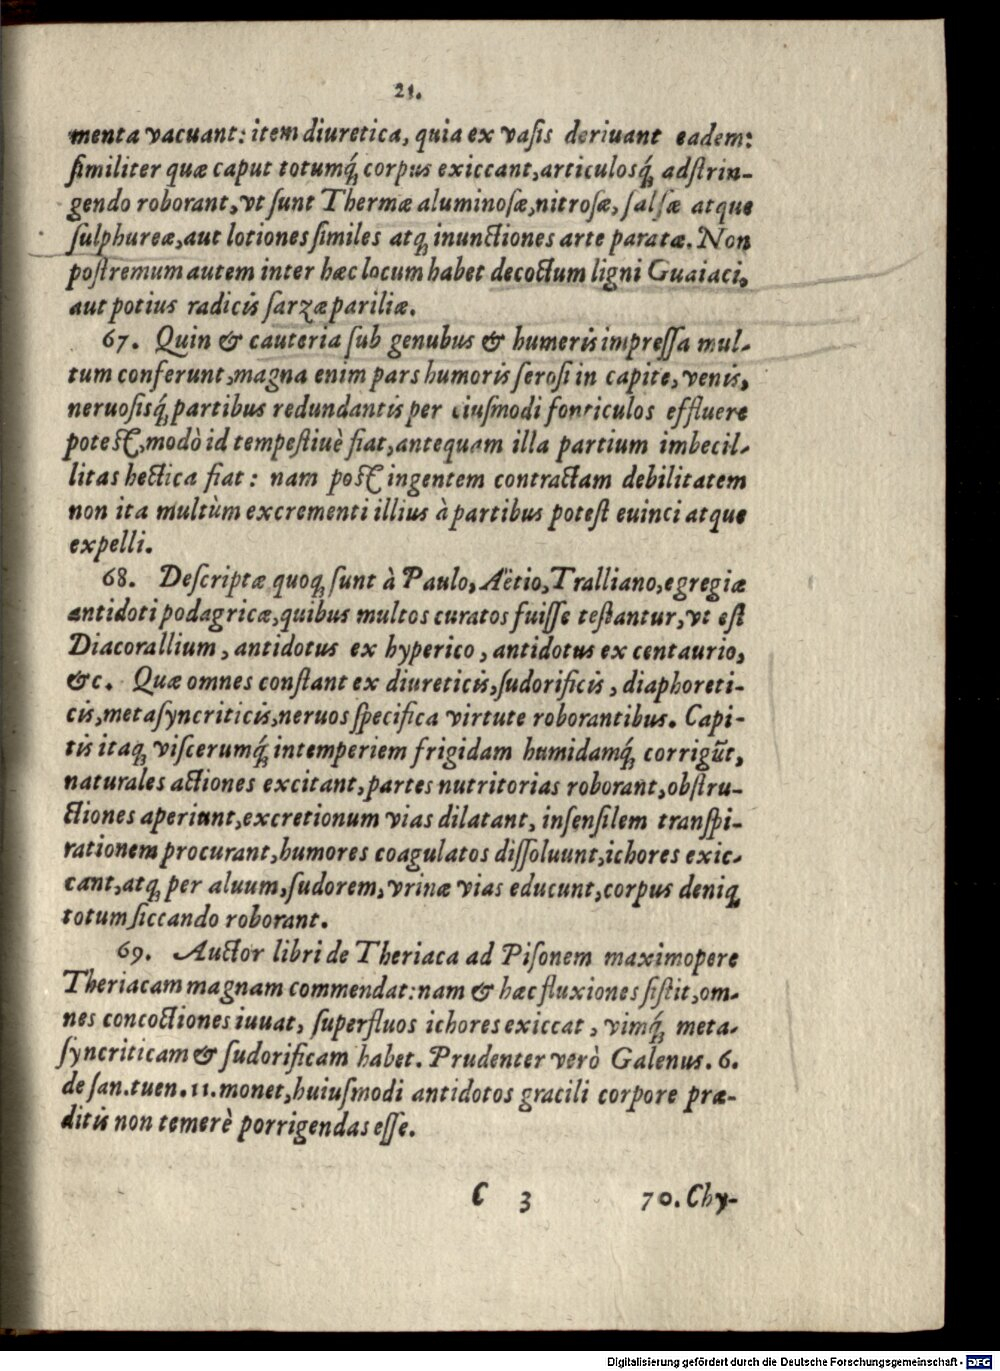 21.
menta vacuant: item diuretica, quia ex vasis deriuant eadem:
ſimiliter quæ caput totumq́ꝫ corpus exiccant, articulosq́ꝫ adſtrin-
gendo roborant, vt ſunt Thermæ aluminoſæ, nitroſæ, ſalſæ atque
ſulphureæ, aut lotiones ſimiles atqꝫ inunctiones arte paratæ. Non
poſtremum autem inter hæc locum habet decoctum ligni Guaiaci,
aut potius radicis ſarzæpariliæ.
67. Quin & cauteria ſub genubus & humeris impreſſa mul-
tum conferunt, magna enim pars humoris ſeroſi in capite, venis,
neruoſisq́ꝫ partibus redundantis per eiuſmodi fonticulos effluere
poteſt, modò id tempeſtiuè fiat, antequam illa partium imbecil-
litas hectica fiat: nam poſt ingentem contractam debilitatem
non ita multùm excrementi illius à partibus poteſt euinci atque
expelli.
68. Deſcriptæ quoqꝫ ſunt à Paulo, Aëtio, Tralliano, egregiæ
antidoti podagricæ, quibus multos curatos fuiſſe teſtantur, vt eſt
Diacorallium, antidotus ex hyperico, antidotus ex centaurio,
&c. Quæ omnes conſtant ex diureticis, ſudorificis, diaphoreti-
cis, metaſyncriticis, neruos ſpecifica virtute roborantibus. Capi-
tis itaqꝫ viſcerumq́ꝫ intemperiem frigidam humidamq́ꝫ corrigūt,
naturales actiones excitant, partes nutritorias roborant, obſtru-
ctiones aperiunt, excretionum vias dilatant, inſenſilem tranſpi-
rationem procurant, humores coagulatos diſſoluunt, ichores exic-
cant, atqꝫ per aluum, ſudorem, vrinæ vias educunt, corpus deniqꝫ
totum ſiccando roborant.
69. Auctor libri de Theriaca ad Piſonem maximopere
Theriacam magnam commendat: nam & hæc fluxiones ſiſtit, om-
nes concoctiones iuuat, ſuperfluos ichores exiccat, vimq́ꝫ meta-
ſyncriticam & ſudorificam habet. Prudenter verò Galenus. 6.
de ſan. tuen. 11. monet, huiuſmodi antidotos gracili corpore præ-
ditis non temerè porrigendas eſſe.
C 3 70. Chy-
Digitalisierung gefördert durch die Deutsche Forschungsgemeinschaft - DFG